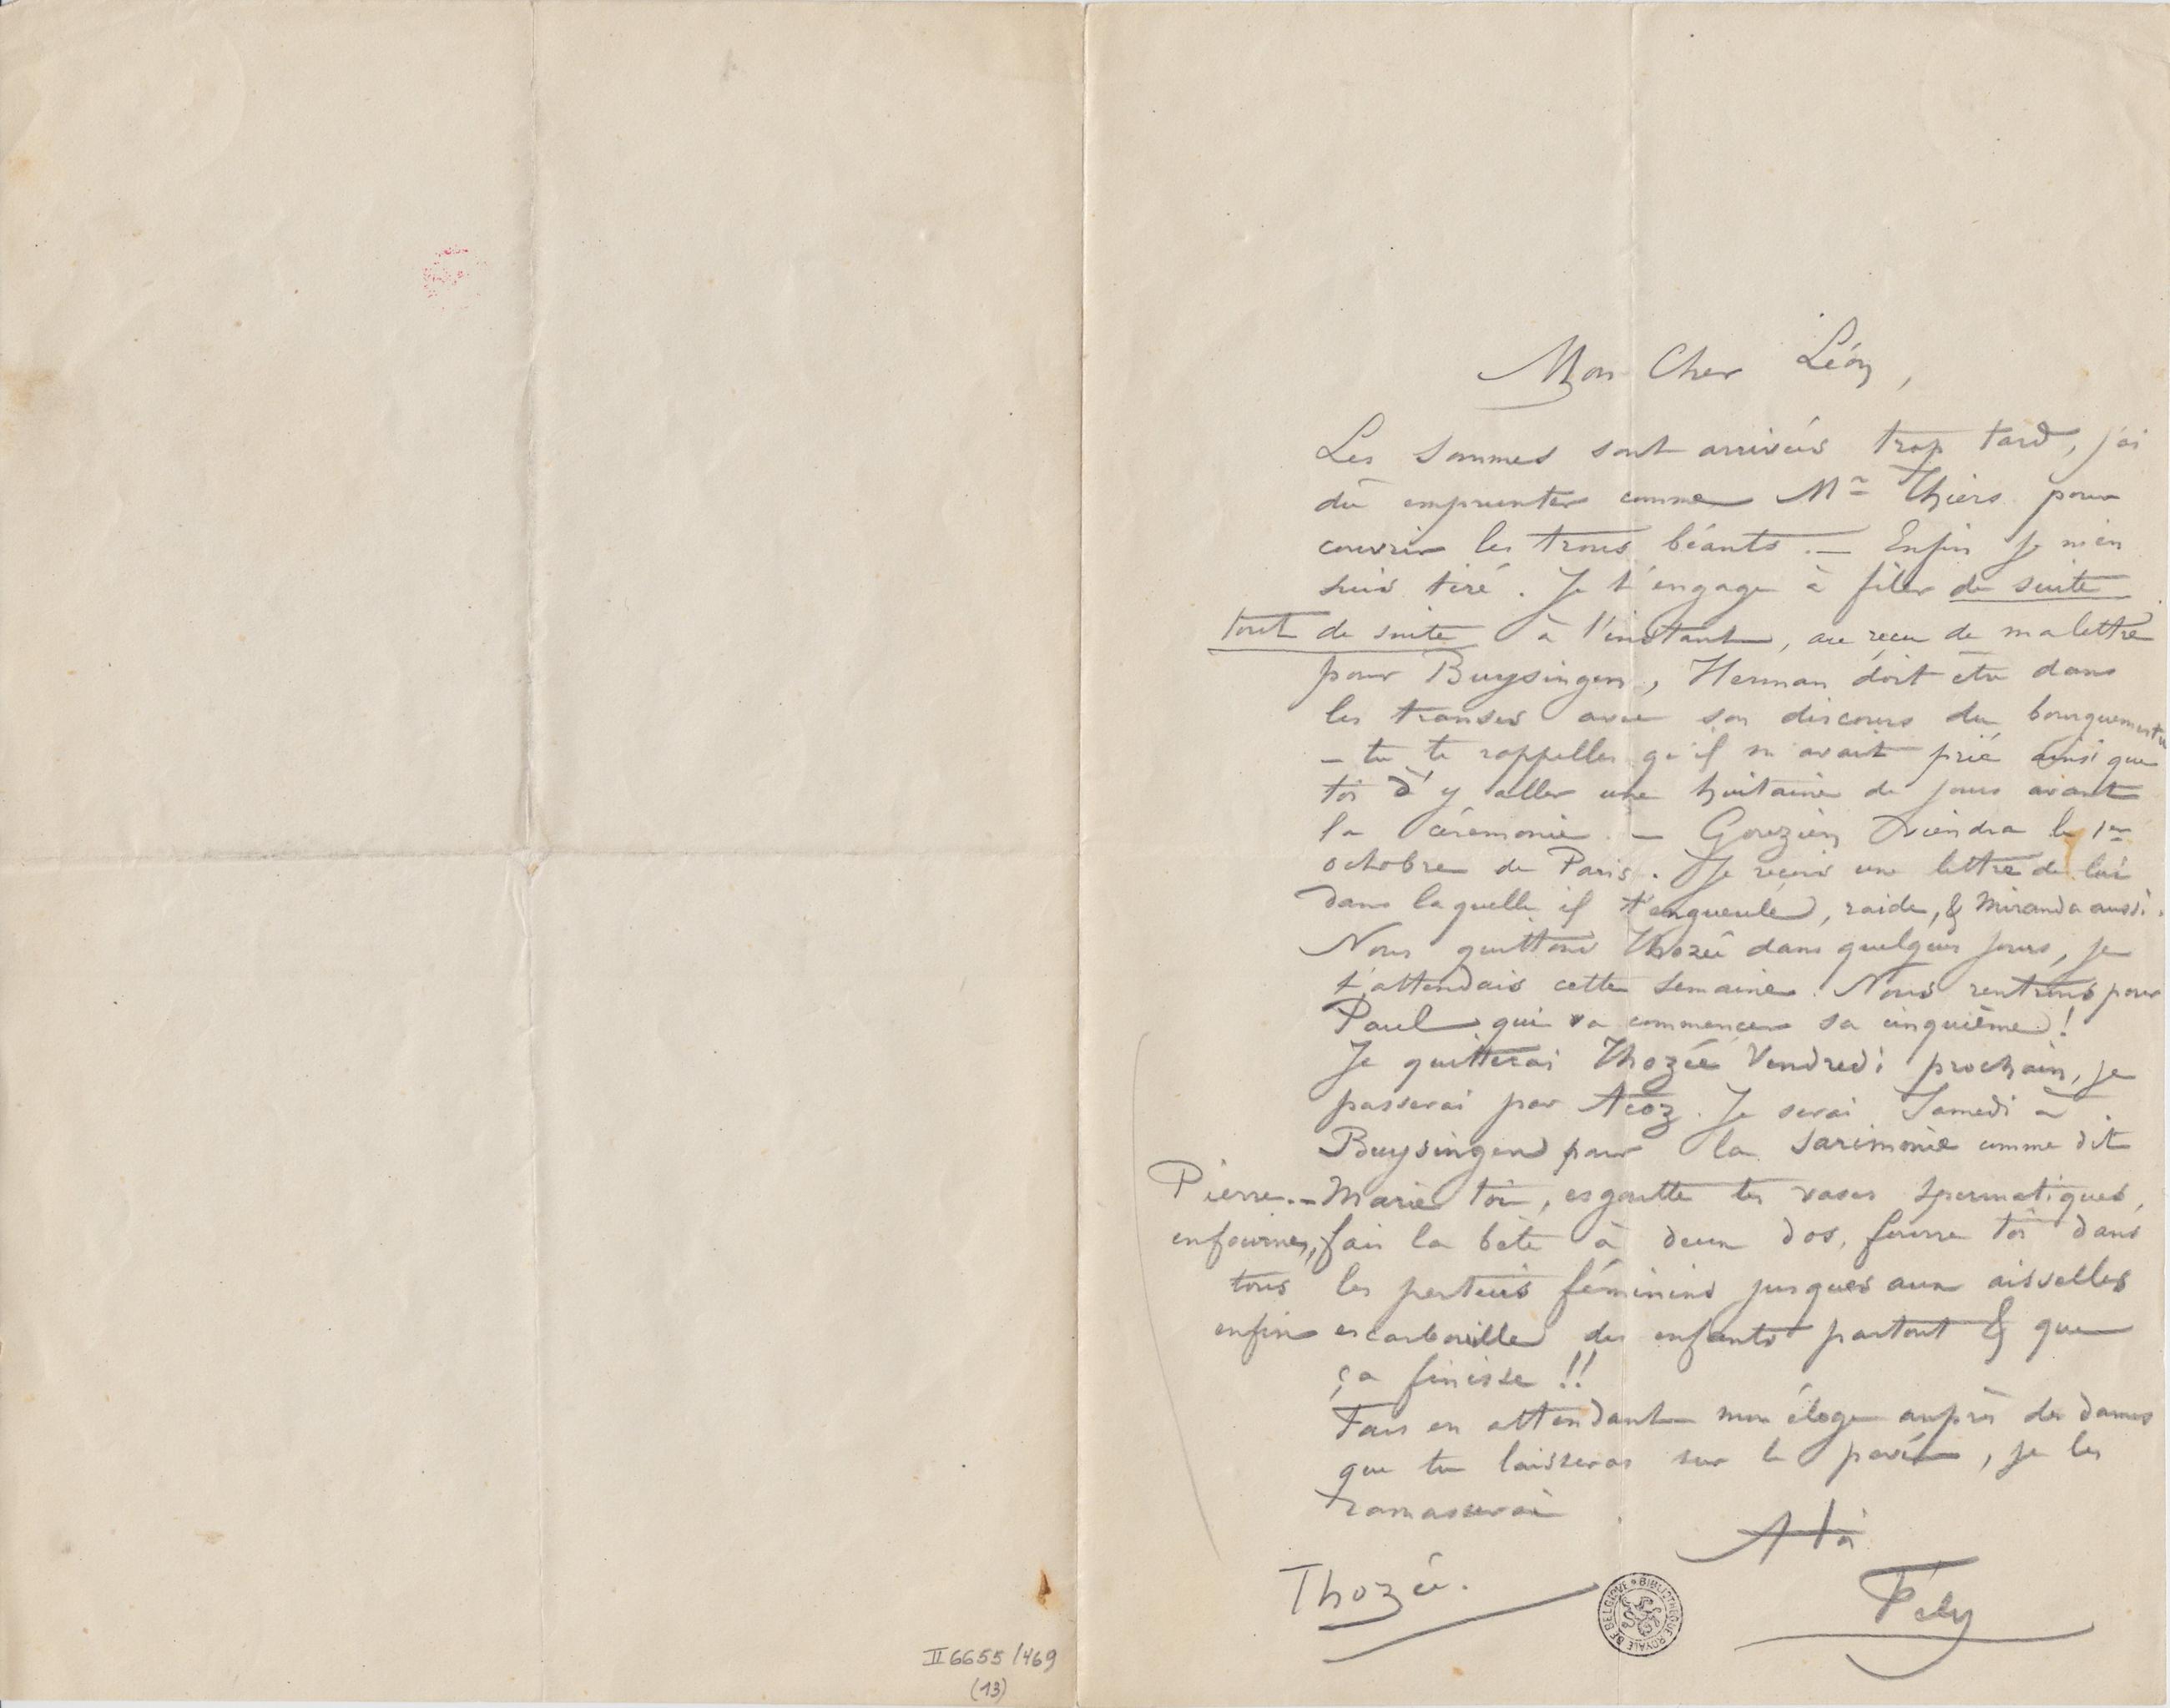 Mon Cher Léon,
Les sommes sont arrivées trop tard, j'ai
dû emprunter comme Mr Thiers pour
couvrir les trous béants. — Enfin je m'en
suis tiré. Je t'engage à filer de suite
tout de suite à l'instant, au reçu de ma lettre
pour Buysingen, Herman doit être dans
les transes avec son discours du bourguemestre
— tu te rappelles qu'il m'avait prié ainsi que
toi d'y aller une huitaine de jours avant
la cérémonie. — Gouzien viendra le 1er
octobre de Paris. Je reçois une lettre de lui
dans laquelle il t'engueule, raide, & Miranda aussi.
Nous quittons Thozée dans quelques jours, je
t'attendais cette semaine. Nous rentrons pour
Paul qui va commencer sa cinquième!
Je quitterai Thozée Vendredi prochain, je
passerai par Acoz. Je serai Samedi à
Buysingen pour la sarimonie comme dit
Pierre. — Marie toi, esgoutte tes vases spermatiques,
enfourne, fais la bête à deux dos, fourre toi dans
tous les pertuis féminins jusques aux aisselles
enfin escarbouille des enfants partout & que
ça finisse!!
Fais en attendant mon éloge auprès des dames
que tu laisseras sur le pavé, je les
ramasserai.
A toi
Thozée.
Fély
BIBLIOTHEQUE ROYALE DE BELGIQUE
II 6655/469
(13)